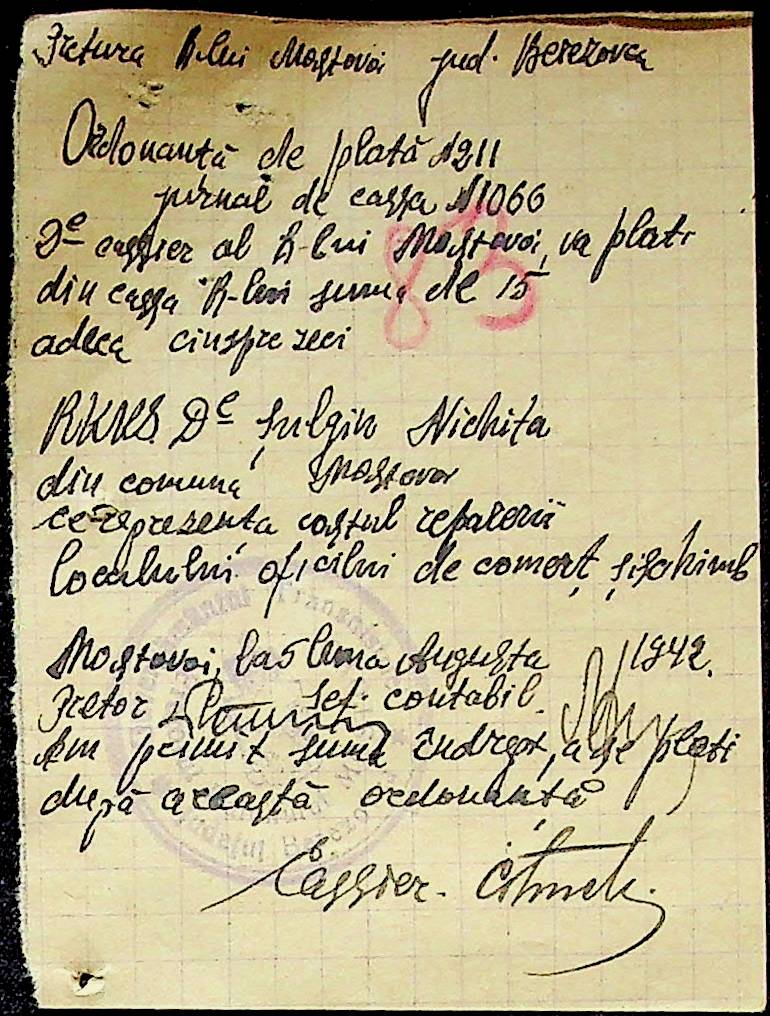 Pretura R-lui Mostovoi jud. Berezovca
Ordonantă de plată N211
jurnal de cassa N1066
85
De cassier al R-lui Mostovoi, va plati
din cassa R-lui suma de 15
adeca cinsprezeci
RKKS. De Șulgin Nichita
din comuna Mostovoi
ce-reprezenta costul reparerii
localului oficilui de comerț, și schimb
Mostovoi, la 5 luna Augusta 1942.
Pretor Șef. contabil.
Am primit suma îndrept, a se plati
după această ordonanță
Cassier.